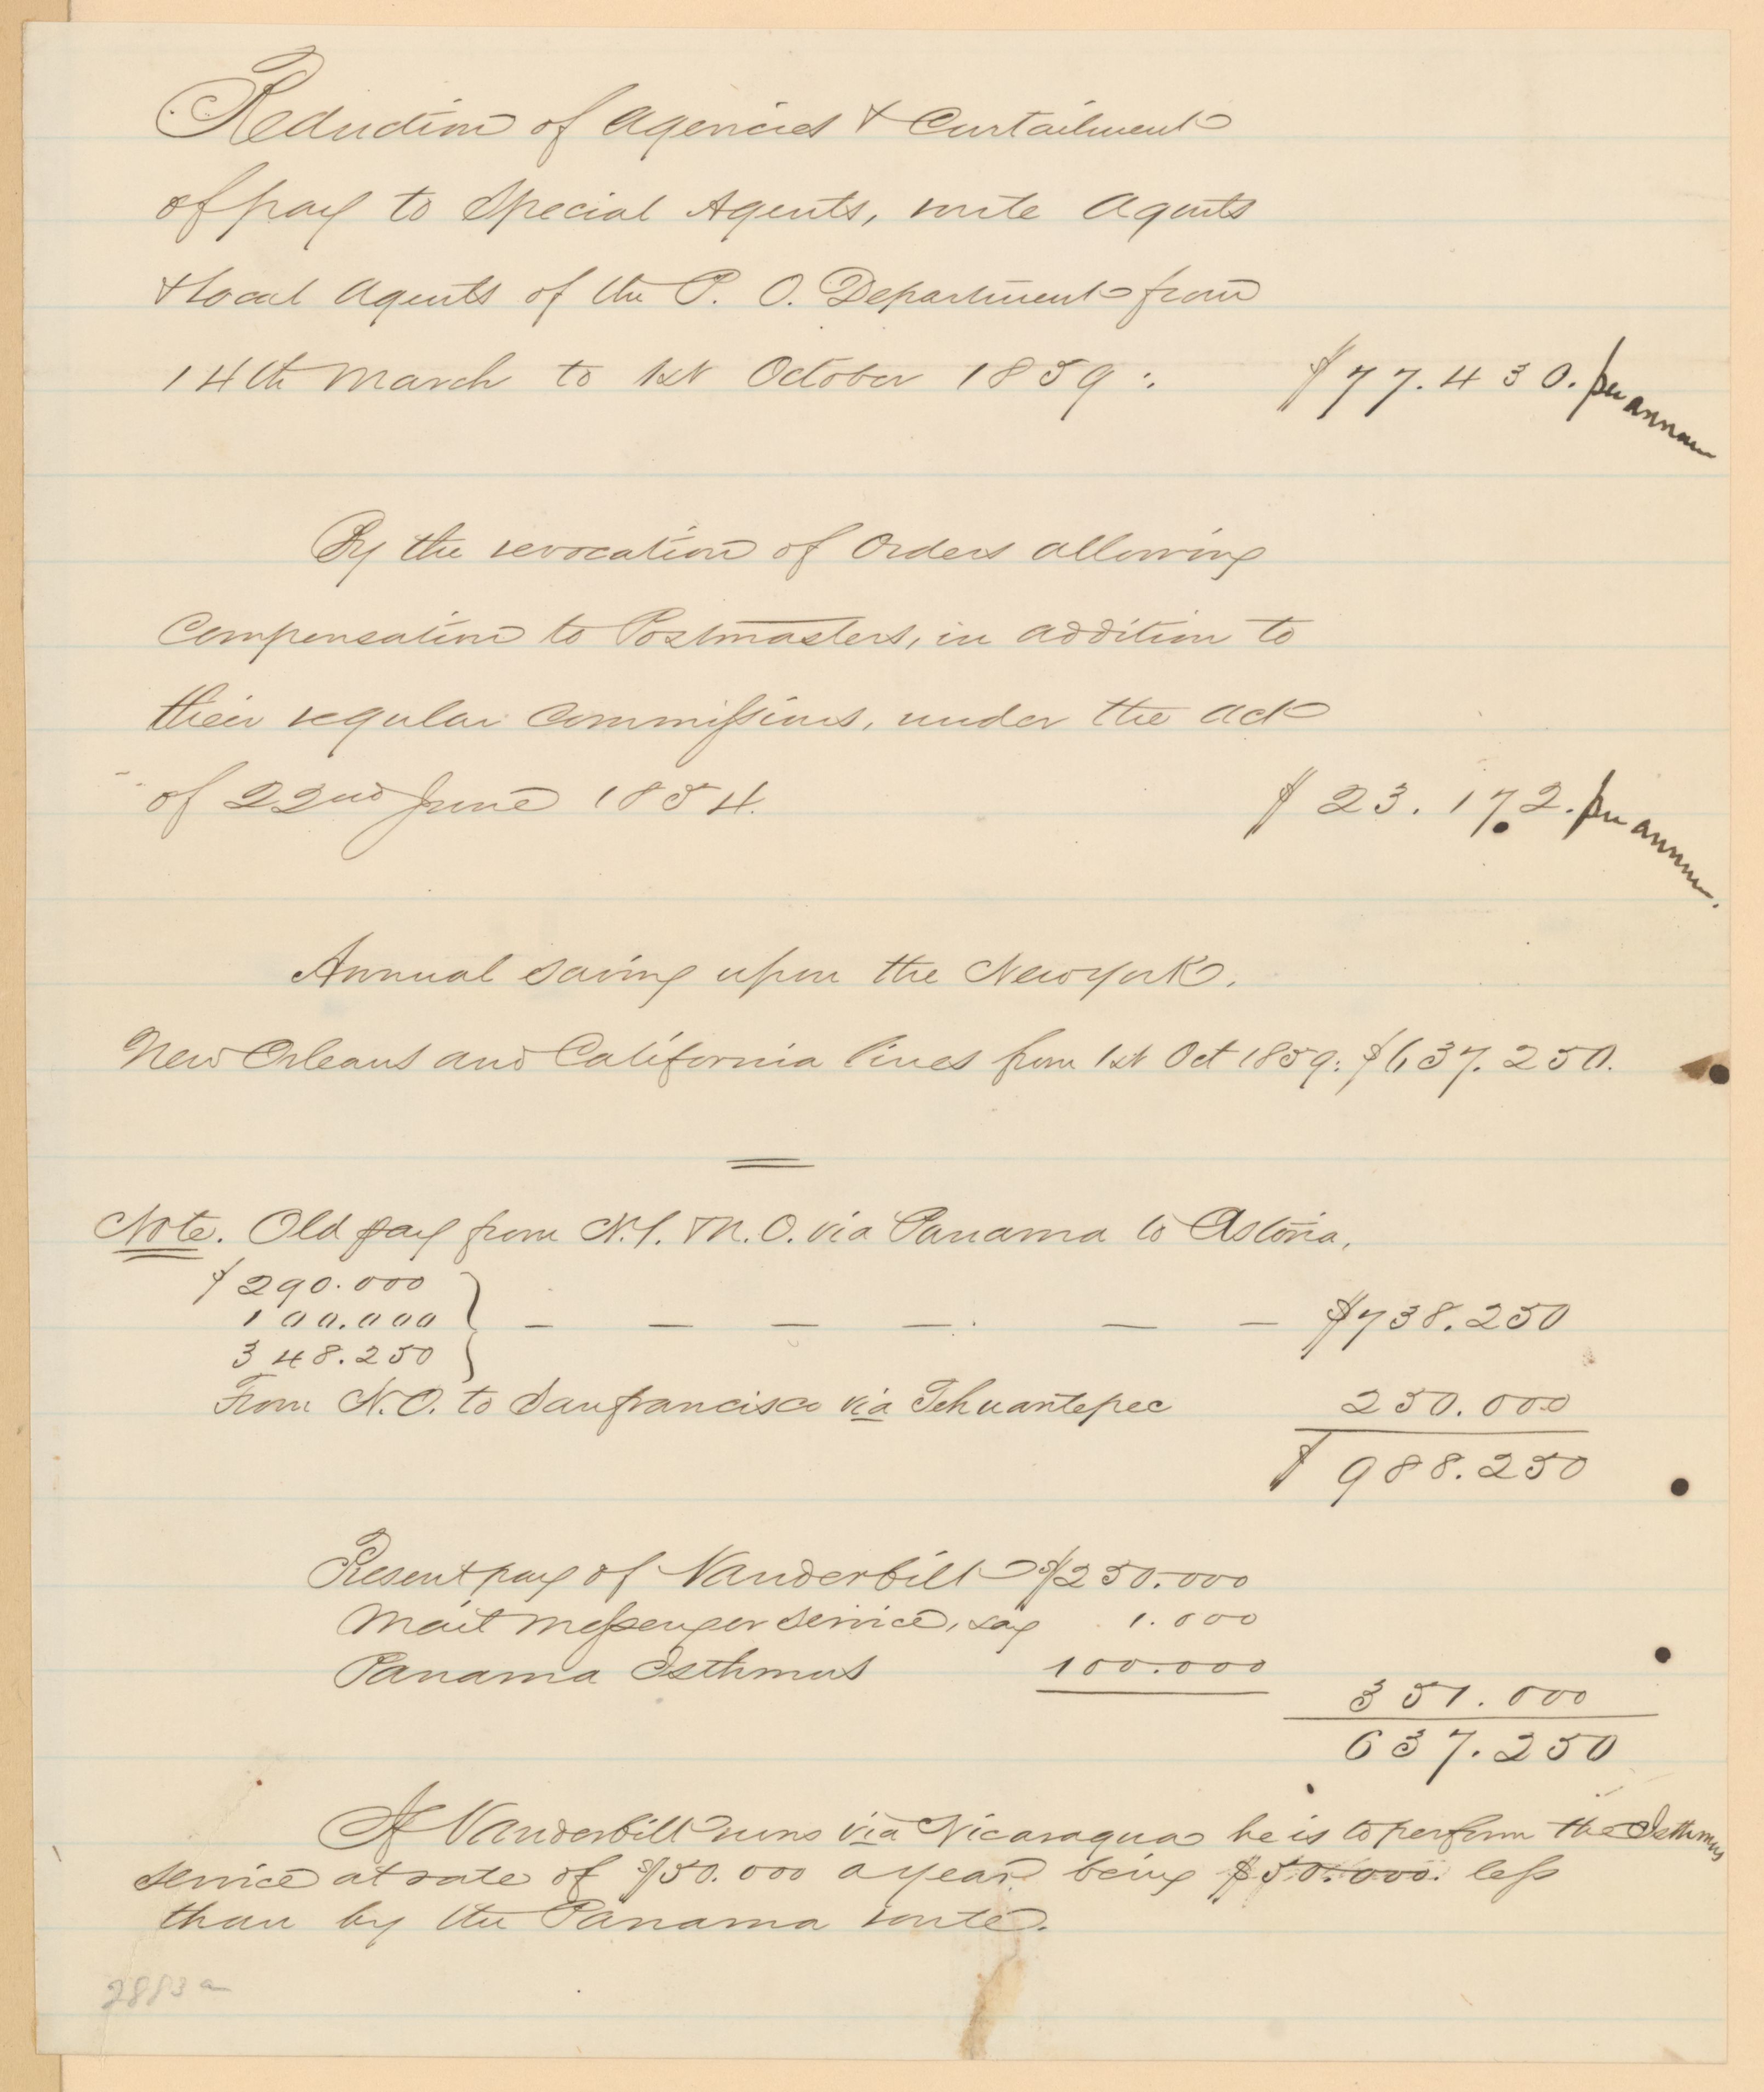 Reduction of Agencies & Curtailment
of pay to Special Agents, route Agents
& local Agents of the P. O. Department from
14th March to 1st October 1859: $77.430. per annum
By the revocation of Orders allowing
Compensation to Postmasters, in addition to
their regular Commissions, under the act
of 22nd June 1854. $23.172. per annum.
Annual saving upon the New York.
New Orleans and California lines from 1st Oct 1859: $637.250.
Note. Old pay from N.Y. & N.O. via Panama to Astoria,
$290.000
100.000 — — — — — — $738.250
348.250
From N.O. to Sanfrancisco via Tehuantepec 250.000
$988.250
Present pay of Vanderbilt $250.000
Mail messenger service, say 1.000
Panama Isthmus 100.000
351.000
637.250
If Vanderbilt runs via Nicaragua he is to perform the Isthmus
service at rate of $50.000 a year being $50.000. less
than by the Panama route.
2883a